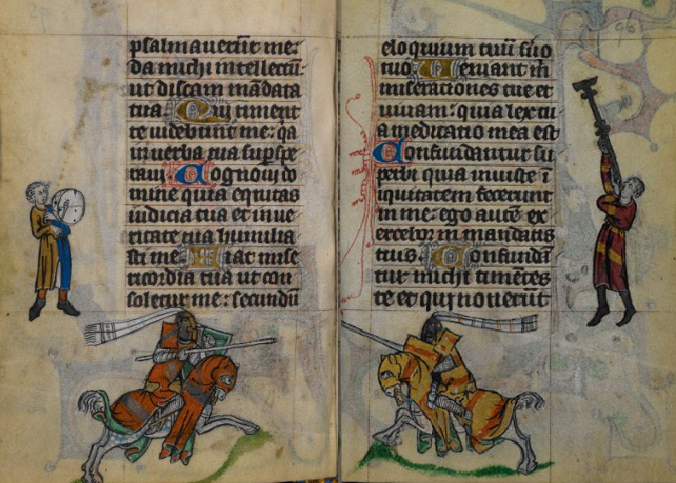 psalmauerũt me:
da michi intellectũ
ut discam mãdata
tua Qui timent
te uidebũt me: q̃a
in uerba tua sup̱spe
raui. Cognoui do
mine quia equitas
iudicia tua et in ue
ritate tua humilia
sti me Fiat mise
ricordia tua ut con
soletur me: secundũ
96
eloquium tuũ suo
tuo. Ueniant m̃
miserationes tue et
uiuam: quia lex tu
a meditatio mea est
Confundantur su
perbi quia iniuste i
iquitatem fecerunt
in me: ego autẽ ex
ercebor in mandatis
tuis. Confundã
tur michi timẽtes
te et qui nouerũt